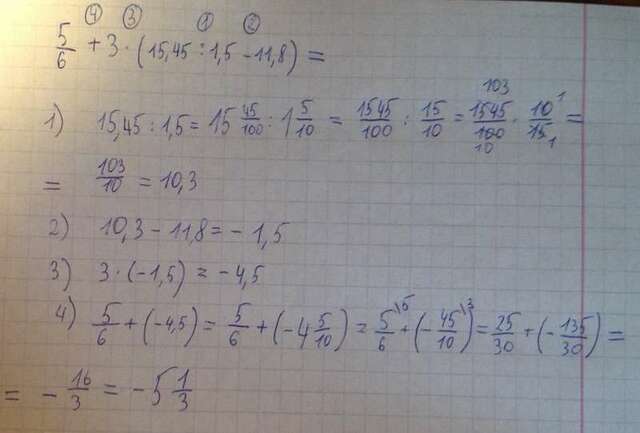 ④ ③ ① ②
5/6 + 3 · (15,45 : 1,5 - 11,8) =
1) 15,45 : 1,5 = 15 45/100 : 1 5/10 = 1545/100 : 15/10 = 1545/100 · 10/15 =
103 1
10 1
= 103/10 = 10,3
2) 10,3 - 11,8 = - 1,5
3) 3 · (-1,5) = -4,5
4) 5/6 + (-4,5) = 5/6 + (-4 5/10) = 5/6 \5 + (- 45/10 \3) = 25/30 + (- 135/30) =
= - 16/3 = -5 1/3